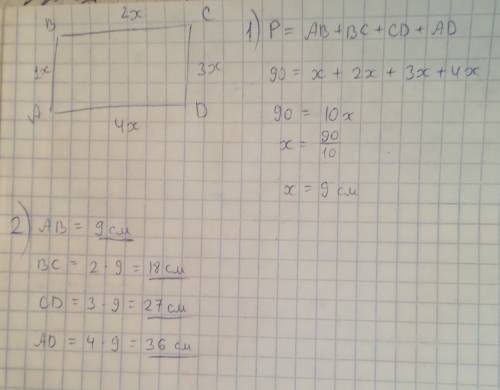 B 2x C
1x 3x
A D
4x
1) P = AB + BC + CD + AD
90 = x + 2x + 3x + 4x
90 = 10x
x = 90/10
x = 9 см
2) AB = 9 см
BC = 2 · 9 = 18 см
CD = 3 · 9 = 27 см
AD = 4 · 9 = 36 см